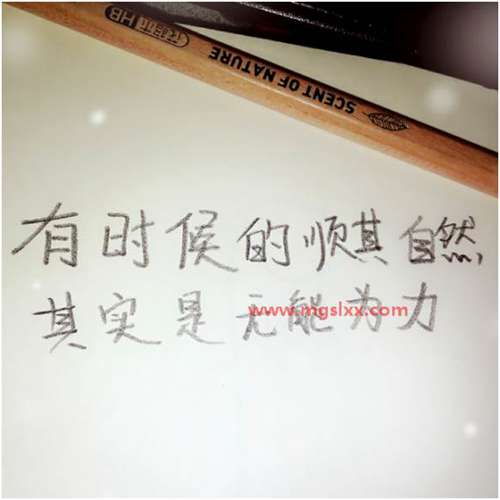 SCENT OF NATURE
HB
有时候的顺其自然,
其实是无能为力
www.mgslxx.com